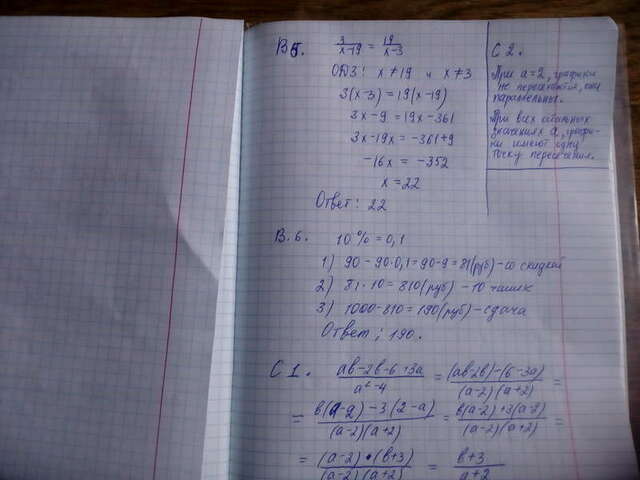 В5. 3/(x-19) = 19/(x-3)
ОДЗ: x≠19 и x≠3
3(x-3) = 19(x-19)
3x-9 = 19x-361
3x-19x = -361+9
-16x = -352
x = 22
Ответ: 22
В.6. 10% = 0,1
1) 90 - 90·0,1 = 90-9 = 81(руб) - со скидкой
2) 81·10 = 810(руб) - 10 чашек
3) 1000-810 = 190(руб) - сдача
Ответ: 190.
С1. (ab-2b-6+3a)/(a²-4) = ((ab-2b)-(6-3a))/((a-2)(a+2)) =
= (b(a-2)-3(2-a))/((a-2)(a+2)) = (b(a-2)+3(a-2))/((a-2)(a+2)) =
= ((a-2)·(b+3))/((a-2)(a+2)) = (b+3)/(a+2)
С2.
При a=2, графики
не пересекаются, они
параллельны.
При всех остальных
значениях a, графи-
ки имеют одну
точку пересечения.